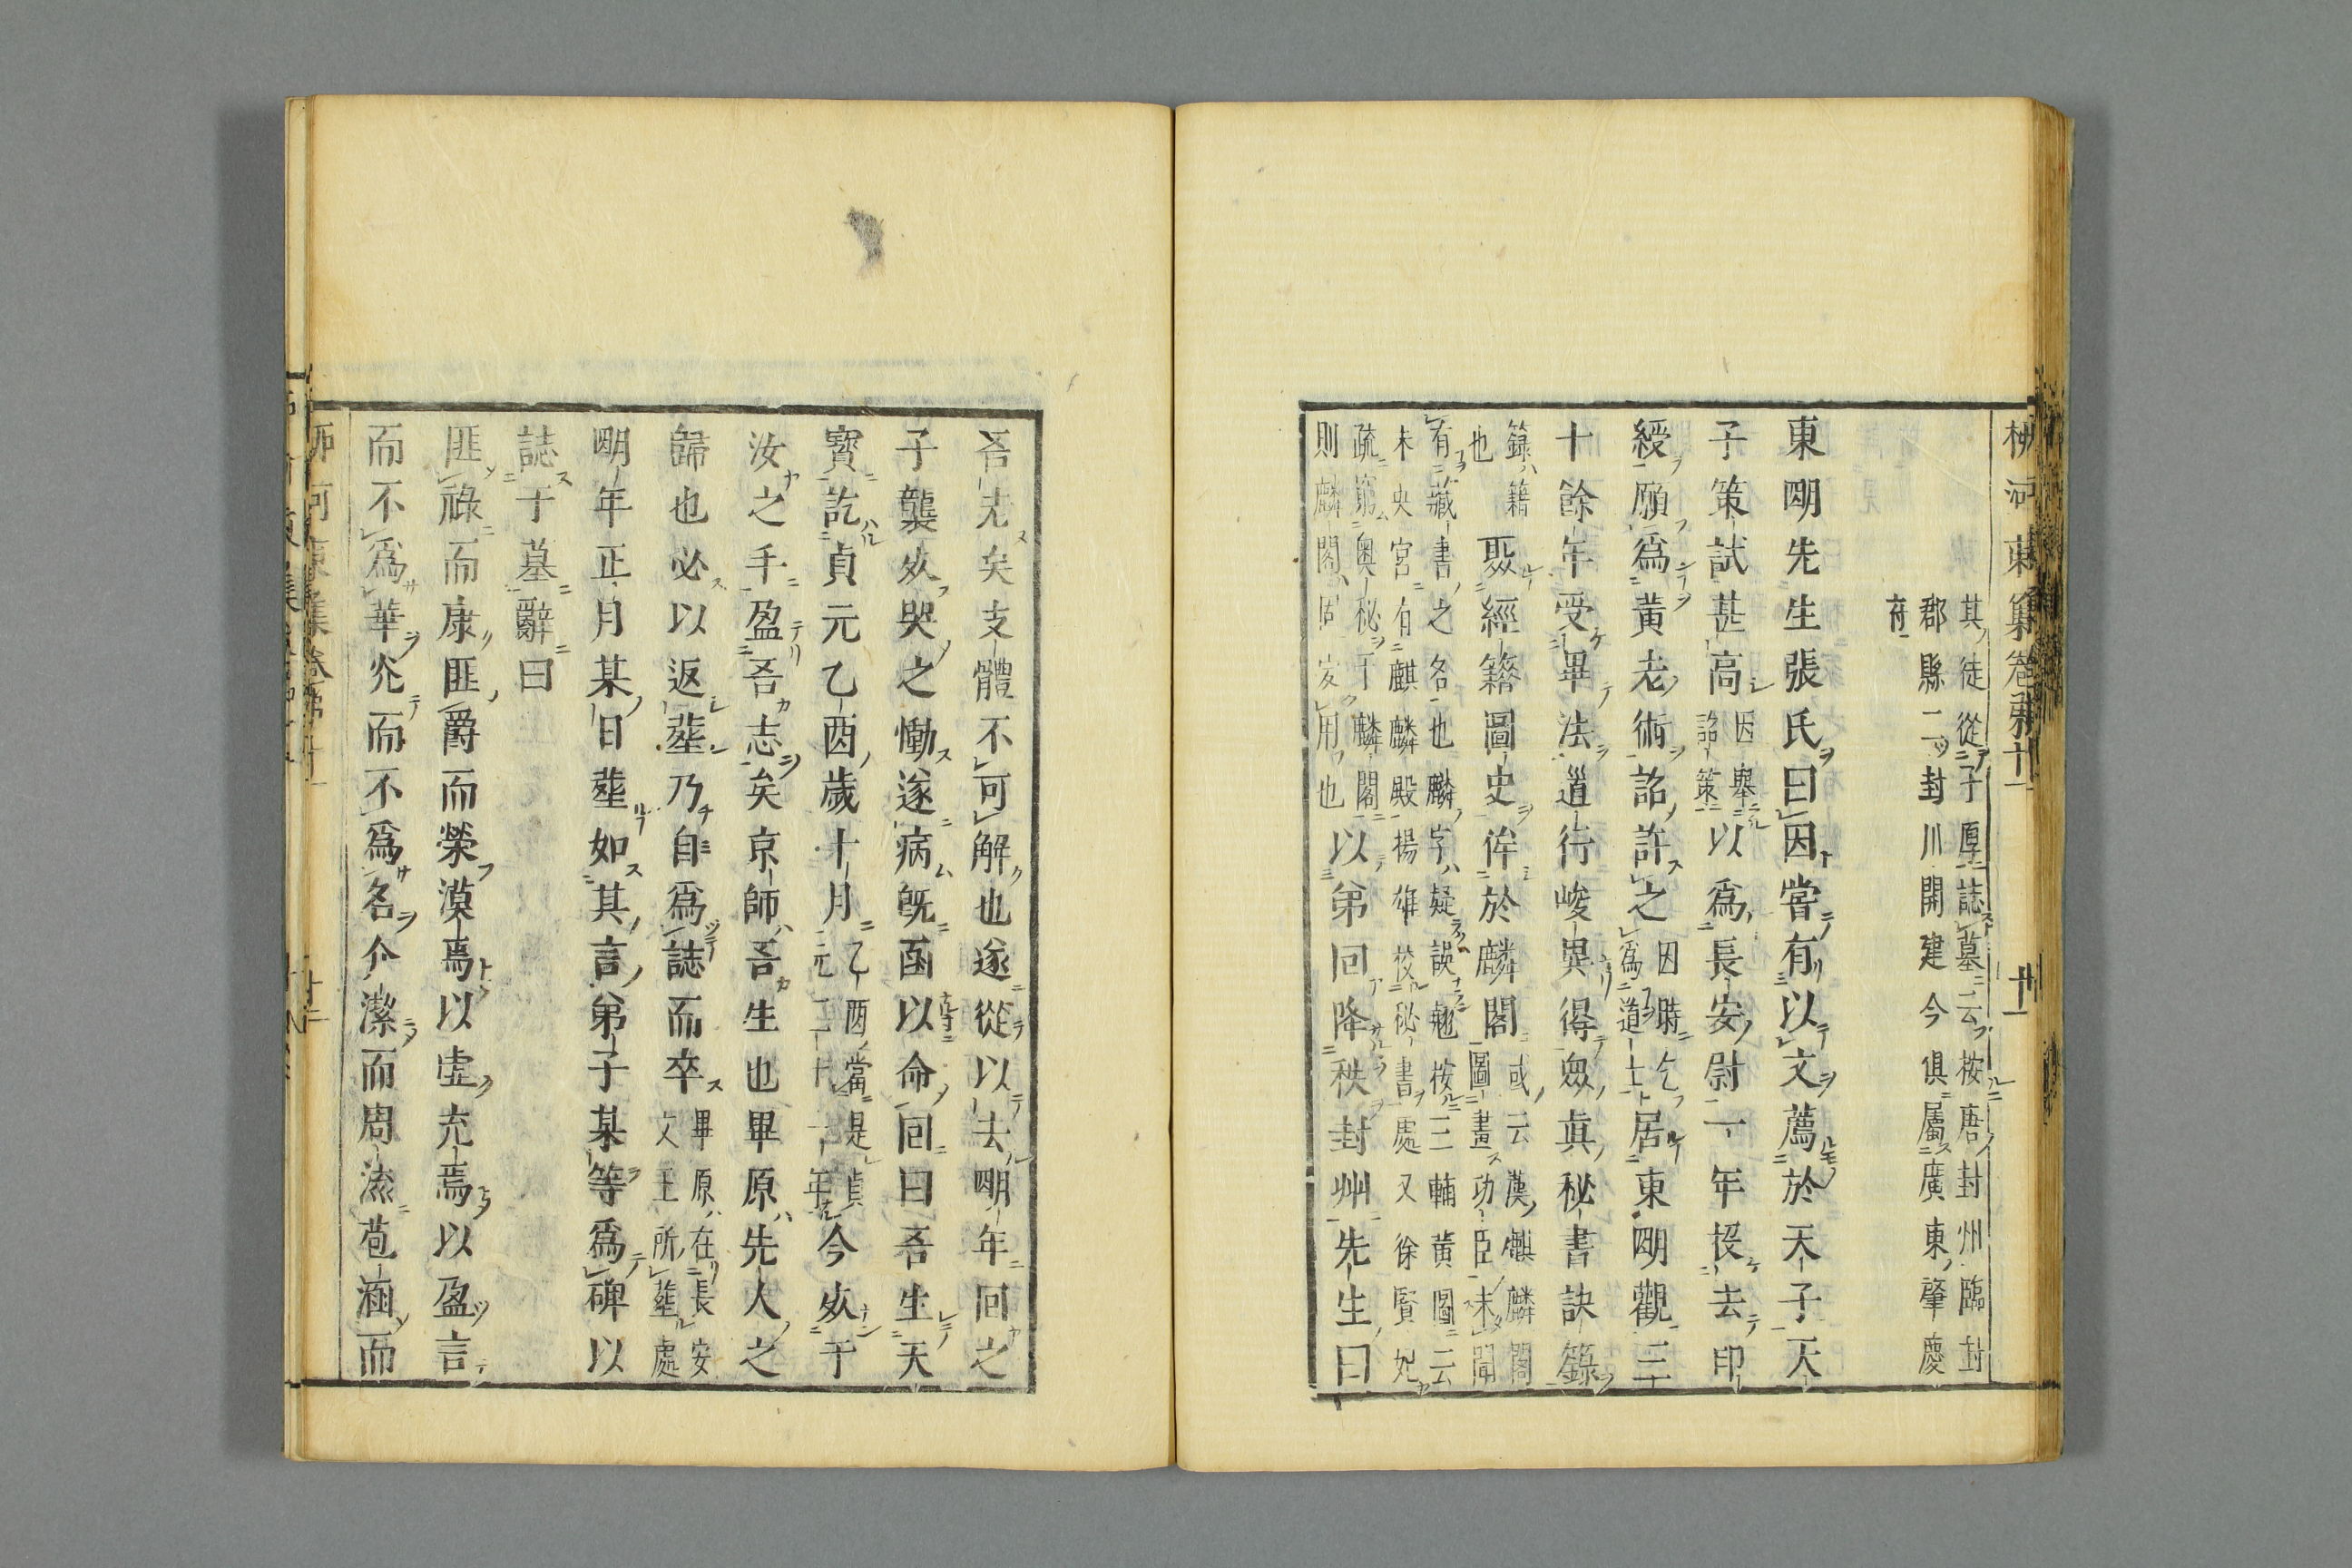 柳河東集卷第十一
十一
其徒從子厚誌墓云按唐封州臨封
郡縣二封川開建今俱屬廣東肇慶
府
東明先生張氏曰因嘗有以文薦於天子天
子策試甚高
因舉
詔策
以爲長安尉一年投去印
綬願爲黃老術詔許之
因時乞
爲道士
居東明觀三
十餘年受畢法道行峻異得衆眞秘書訣籙
籙籍
也
聚經籍圖史侔於麟閣
或云漢麒麟閣
圖畫功臣未聞
有藏書之名也麟字疑誤魭按三輔黃圖云
未央宮有麒麟殿揚雄校秘書處又徐賢妃
疏窮奧秘于麟閣
則麟閣固安用也
以弟回降秩封州先生曰
吾老矣支體不可解也遂從以去明年回之
子襲死哭之慟遂病旣亟以命回曰吾生天
寶訖貞元乙酉歲十月
乙酉當是貞
元二十一年
今死于
汝之手盈吾志矣京師吾生也畢原先人之
歸也必以返葬乃自爲誌而卒
畢原在長安
文王所葬處
明年正月某日葬如其言弟子某等爲碑以
誌于墓辭曰
匪祿而康匪爵而榮漠焉以虛充焉以盈言
而不爲華光而不爲名介潔而周流苞涵而
柳河東集卷第十一
十二